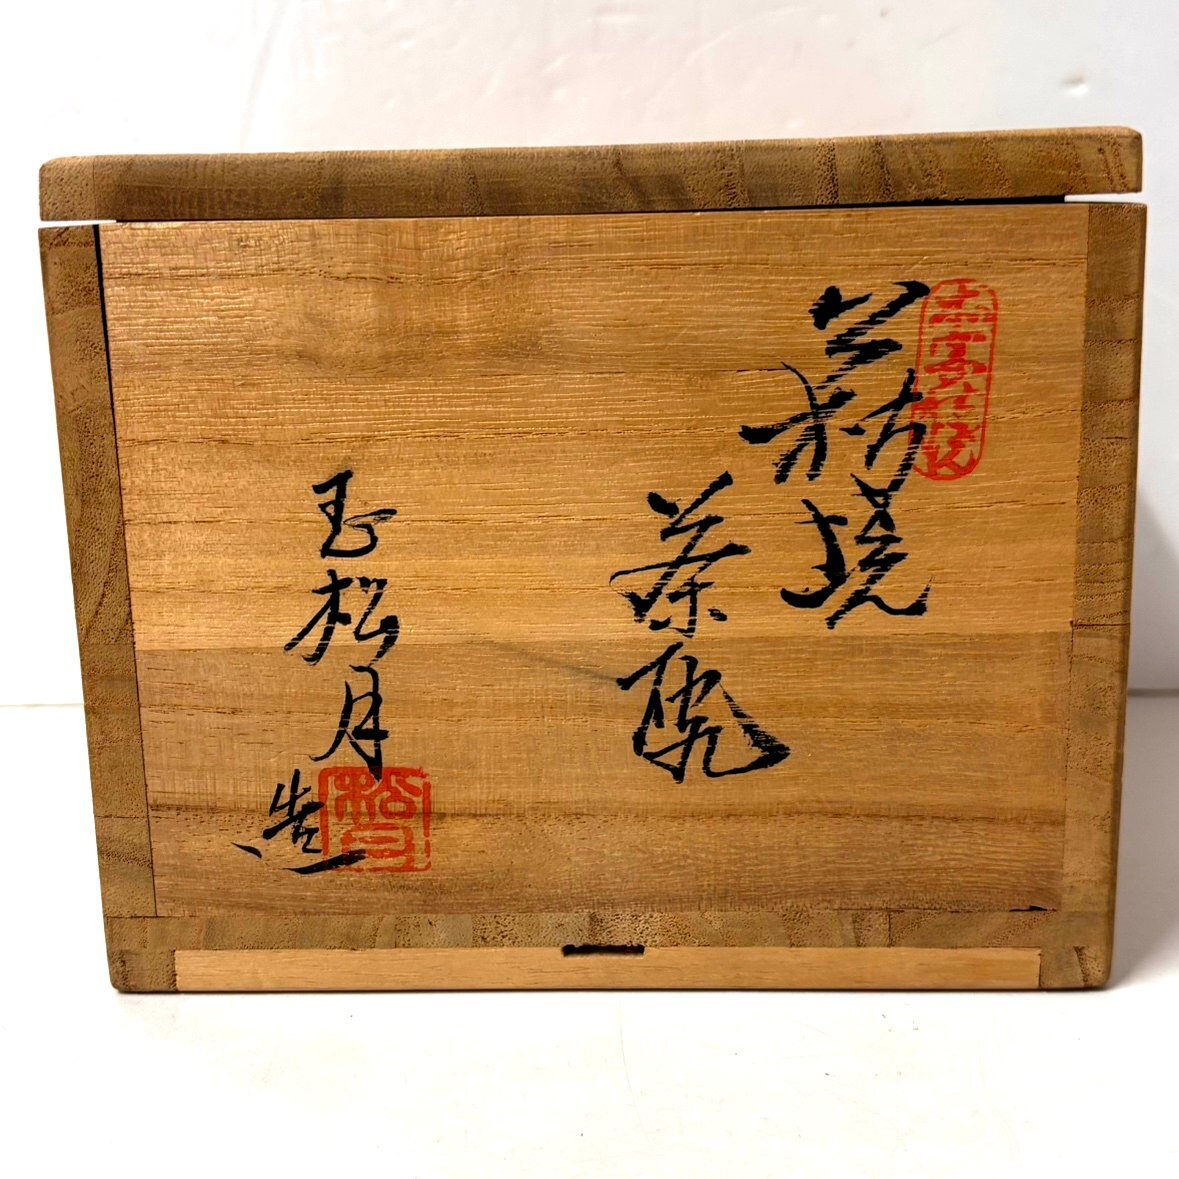 萩焼
茶碗
玉松月造
松月